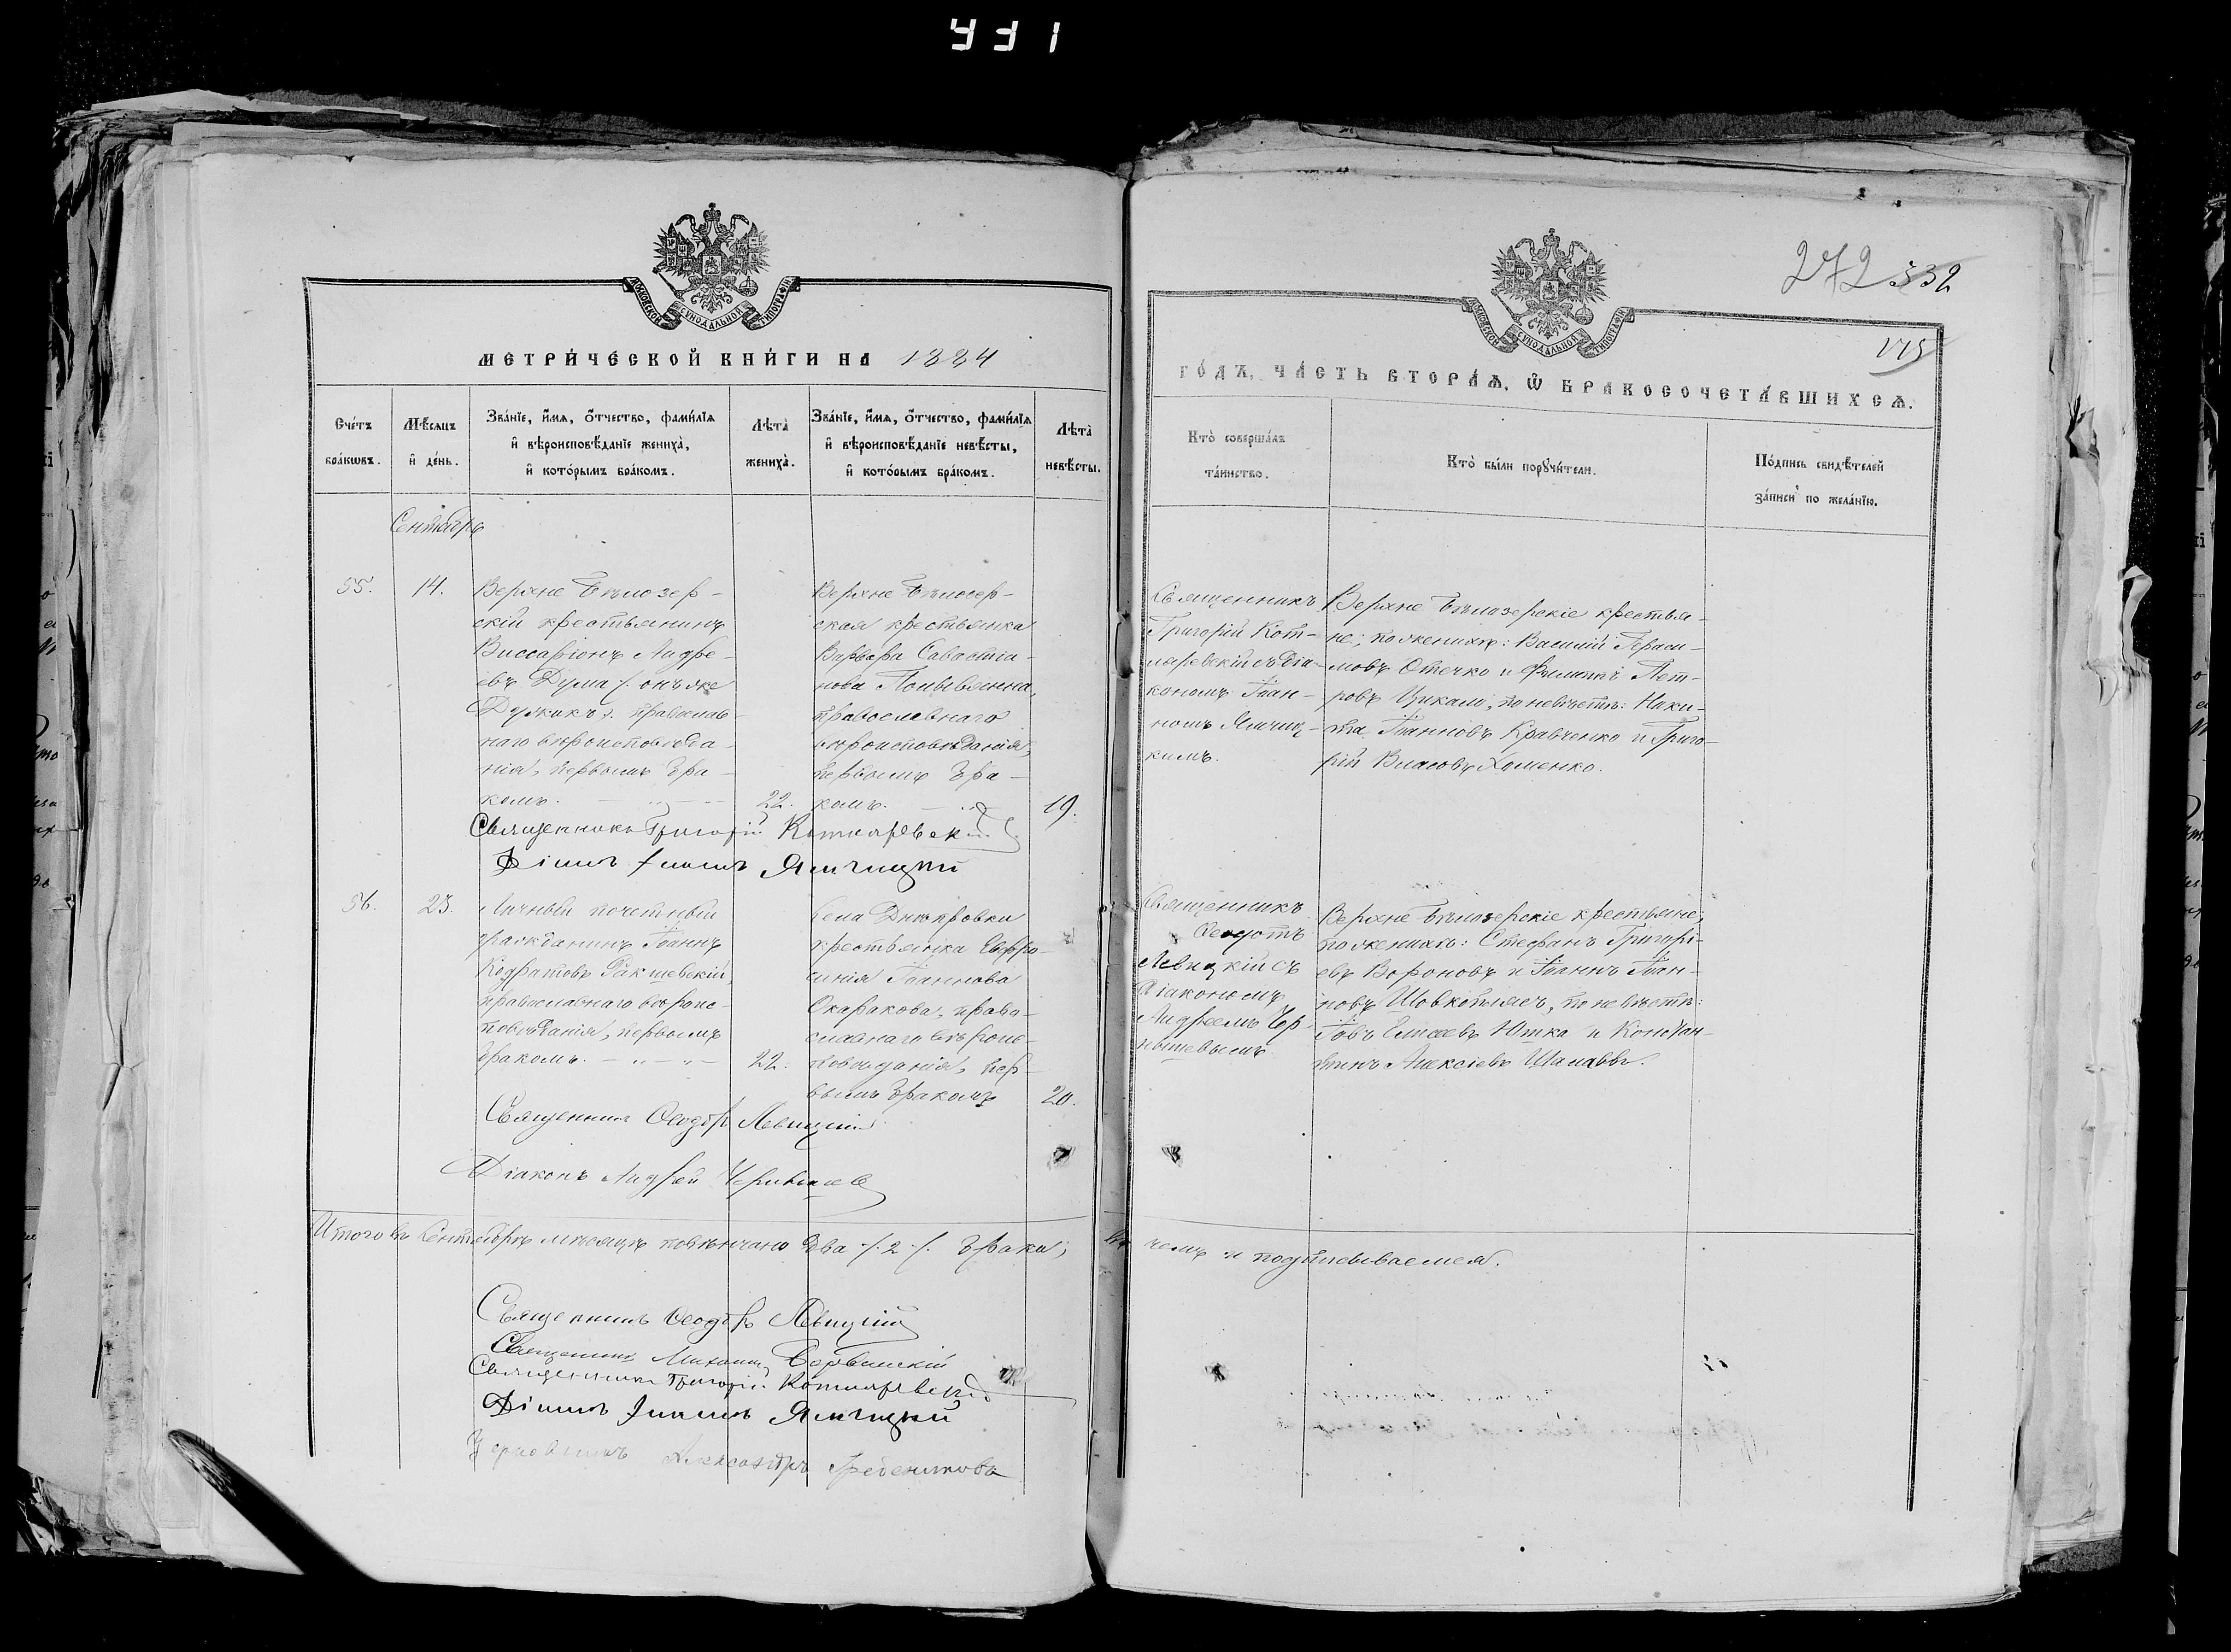 431
МОСКОВСКОЙ СѴНОДАЛЬНОЙ ТИПОГРАФІИ
МЕТРИ́ЧЕСКОЙ КНИ́ГИ НА 1884
Сче́тъ бра́кѡвъ.
Мѣ́сяцъ и҆ де́нь.
Зва́нїе, и҆́мѧ, ѻ҆́тчество, фами́лїѧ
и҆ вѣроисповѣ́данїе жениха̀,
и҆ кото́рымъ бра́комъ.
Лѣта̀ жениха̀.
Зва́нїе, и҆́мѧ, ѻ҆́тчество, фами́лїѧ
и҆ вѣроисповѣ́данїе невѣ́сты,
и҆ кото́рымъ бра́комъ.
Лѣта̀ невѣ́сты.
Сентябрь
55.
14.
Верхне Бѣлозер-
скій крестьянинъ
Виссаріонъ Андре-
евъ Дума /. онъ же
православ-
наго вѣроисповѣда-
нія, первымъ бра-
комъ.
22.
Верхне Бѣлозер-
ская крестьянка
Варвара Савастіа-
нова
православнаго
вѣроисповѣданія,
первымъ бра-
комъ.
19.
Священникъ Григорій Котляревскій
Діаконъ Іоаннъ Ямчицкій
56.
23.
Личный почетный
гражданинъ Іоаннъ
Кодратовъ Ракшевскій,
православнаго вѣроис-
повѣданія, первымъ
бракомъ.
22.
Села Днѣпровки
крестьянка Евфро-
синія Іоаннова
Скаракова, право-
славнаго вѣроис-
повѣданія, пер-
вымъ бракомъ
20.
Священникъ Ѳеодоръ Левицкій
Діаконъ Андрей Чернышев
Итого въ Сентябрѣ мѣсяцѣ повѣнчано два /. 2 /. брака;
Священникъ Ѳеодоръ Левицкій
Священникъ Михаилъ
Священникъ Григорій Котляревскій
Діаконъ Іоаннъ Ямчицкій
Александръ Гребенников
272 532
175
ГО́ДЪ, ЧА́СТЬ ВТОРА́Ѧ, Ѽ БРАКОСОЧЕТА́ВШИХСѦ.
МОСКОВСКОЙ СѴНОДАЛЬНОЙ ТИПОГРАФІИ
Кто̀ соверша́лъ та́инство.
Кто̀ бы́ли порꙋчи́тели.
По́дпись свидѣ́телей
за́писи по жела́нїю.
Священникъ
Григорій Кот-
ляревскій съ діа-
кономъ Іоан-
номъ Ямчиц-
кимъ.
Верхне Бѣлозерскіе крестья-
не; по женихѣ: Василій Гераси-
мовъ Отечко и Филиппъ Пет-
ровъ Цикало, по невѣстѣ: Ники-
та Іоанновъ Кравченко и Григо-
рій Власовъ Хоменко.
Священникъ
Ѳеодотъ
Левицкій съ
діакономъ
Андреемъ Чер-
нышевымъ
Верхне Бѣлозерскіе крестьяне;
по женихѣ: Стефанъ Григорі-
евъ Вороновъ и Іоаннъ Іоан-
новъ Шовкоплясъ, по невѣстѣ:
Іовъ Елисеевъ Ютка и Констан-
тинъ Алексіевъ
чемъ и подписываемся.